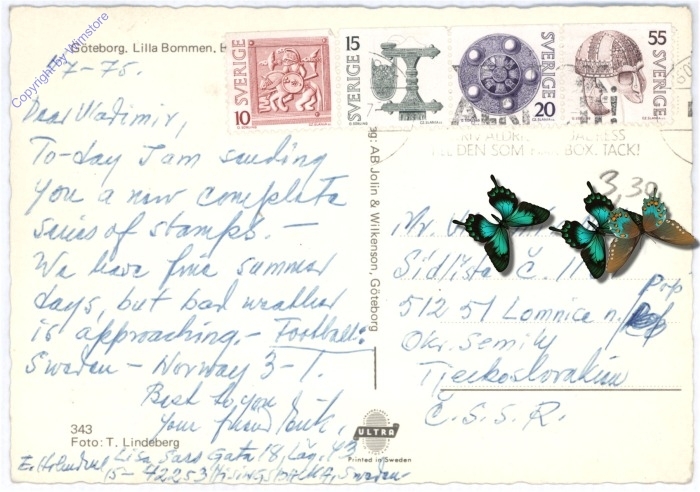 Göteborg. Lilla Bommen,
Copyright by Wimstore
7-75.
Dear Vladimir,
To-day I am sending
you a new complete
series of stamps. —
We have fine summer
days, but bad weather
is approaching. — Football:
Sweden — Norway 3-1.
Best to you —
Your friend
343
Foto: T. Lindeberg
Lisa Sass Gata 18, Läg. 43
42253 Hisings Backa, Sweden
AB Jolin & Wilkenson, Göteborg
SVERIGE 10
15 SVERIGE
SVERIGE 20
55 SVERIGE
ALDRI
ADRESS
DEN SOM BOX. TACK!
3,30
Mr.
Sídliště č. 11
512 51 Lomnice n./Pop
Okr. Semily
Tjeckoslovakien
Č.S.S.R.
ULTRA
Printed in Sweden